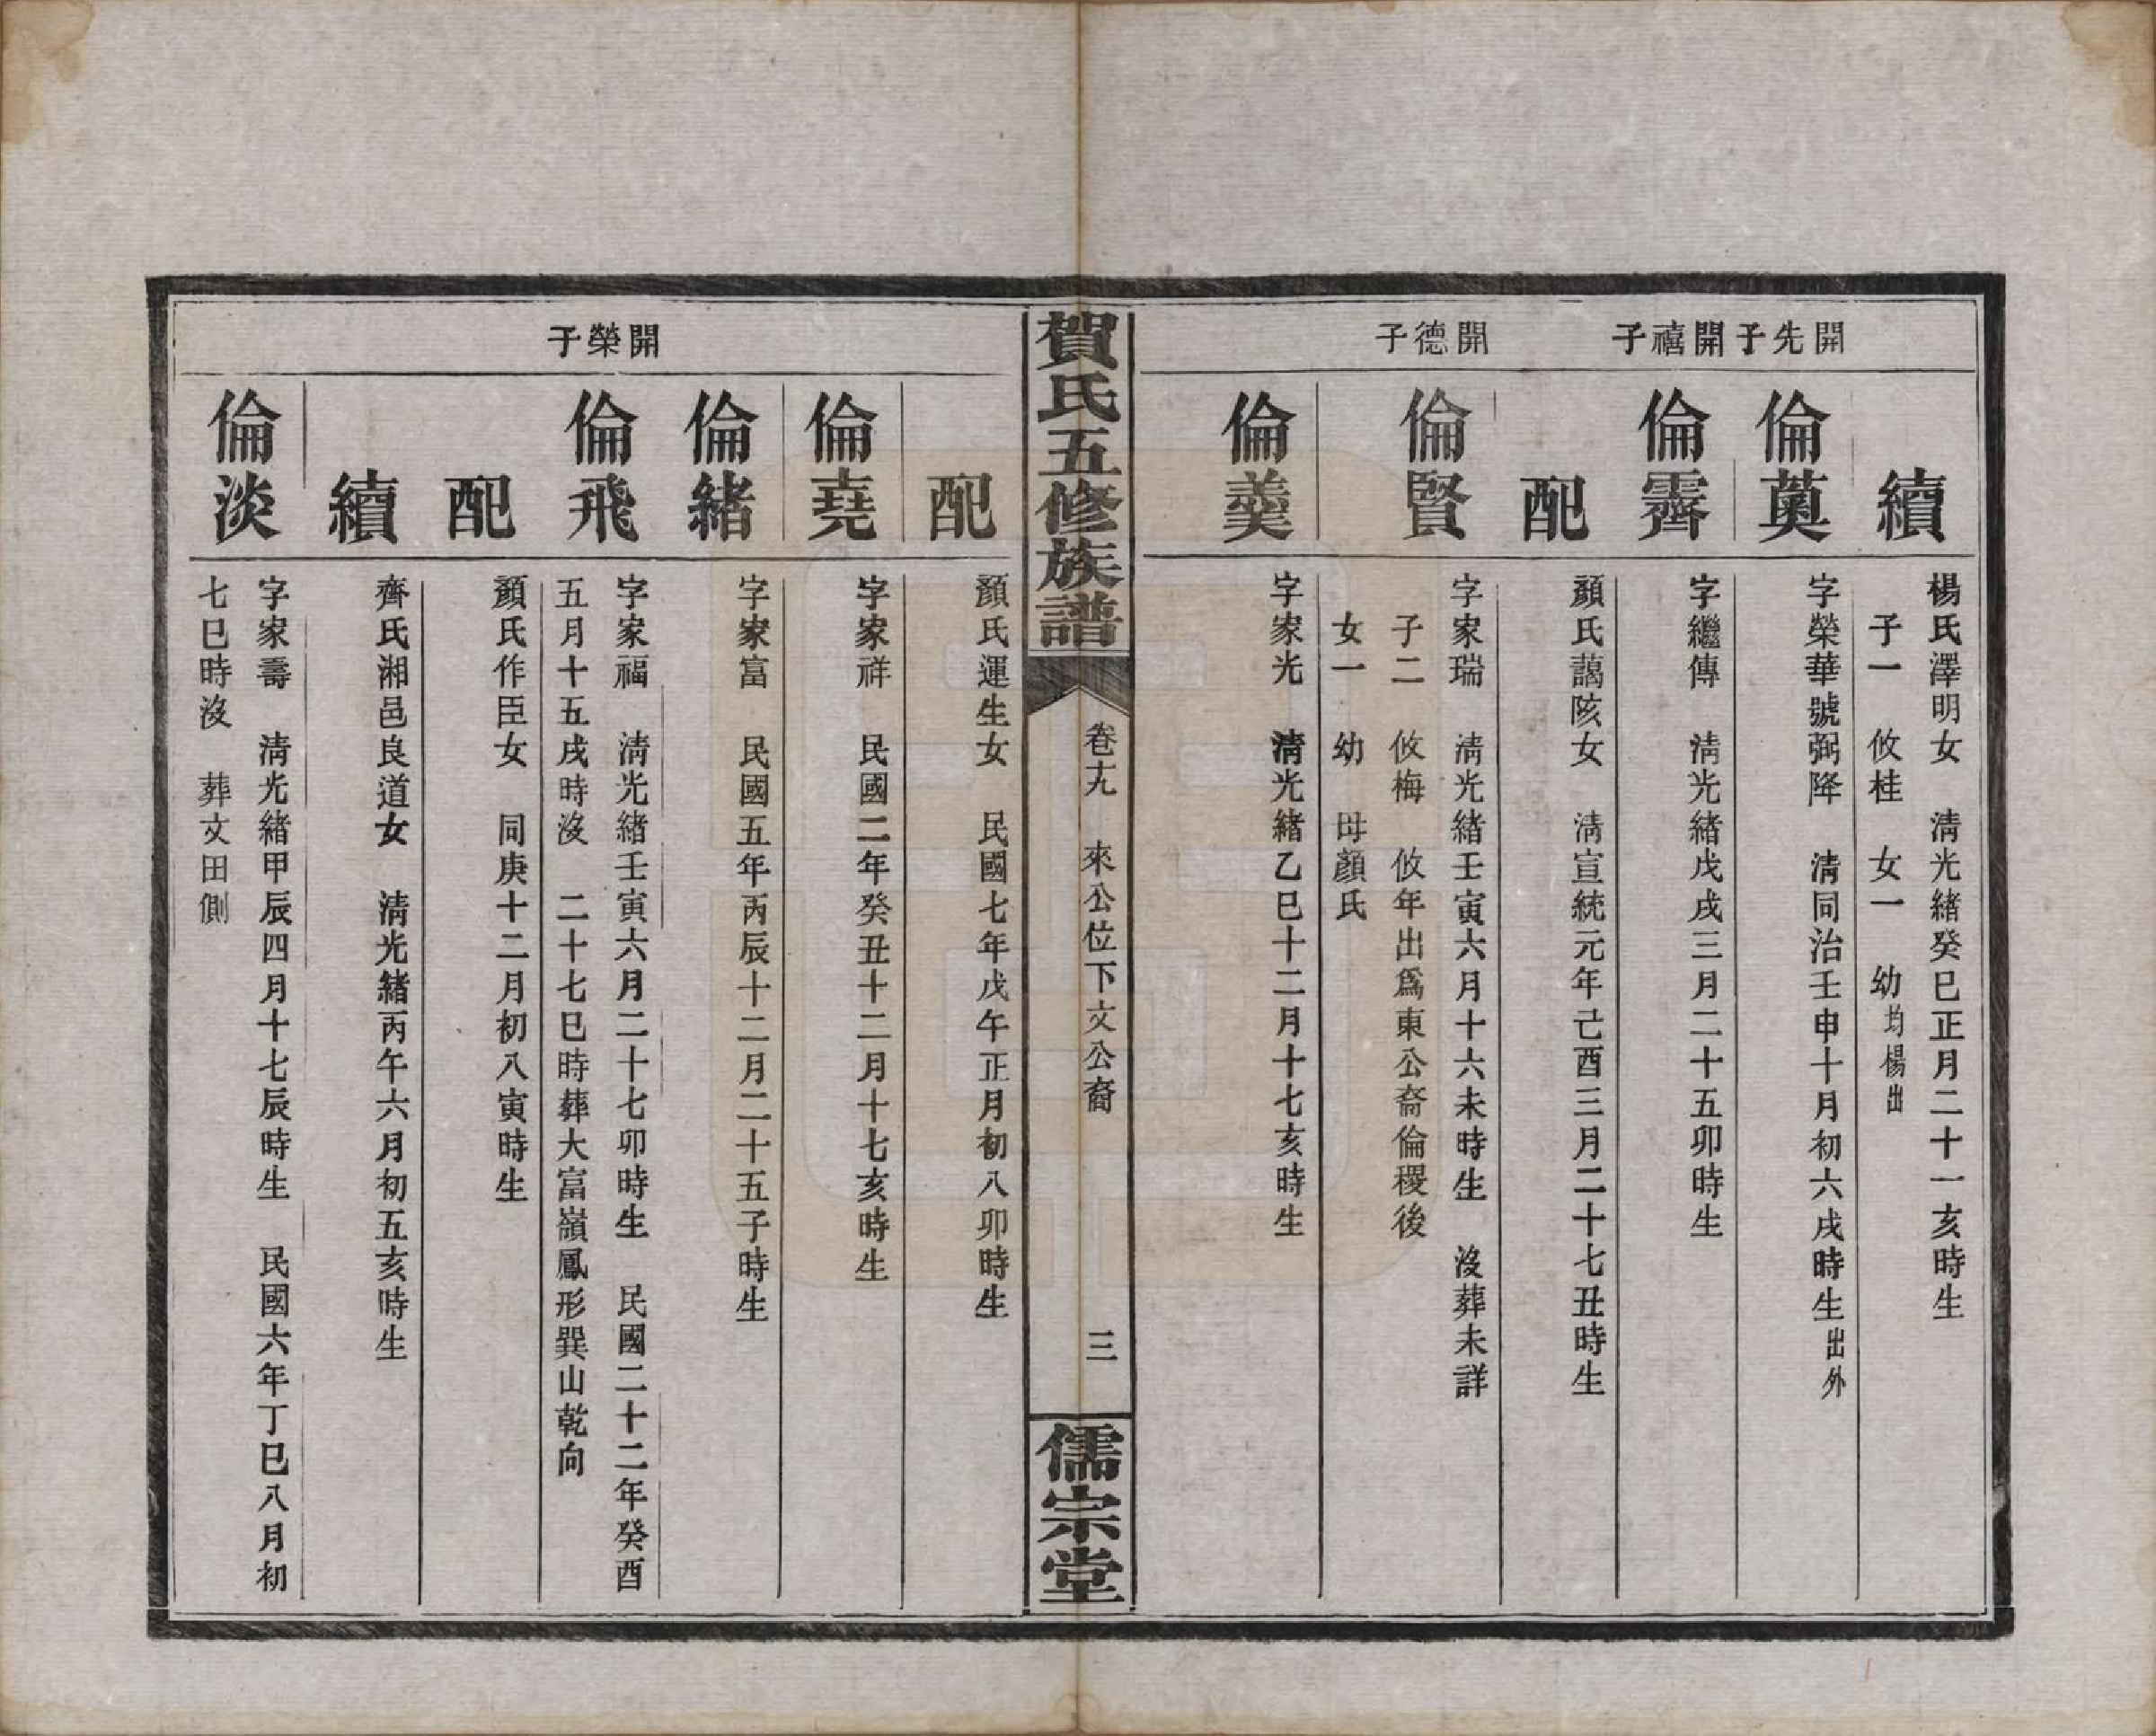 續
楊氏澤明女　清光緒癸巳正月二十一亥時生
子一　攸桂　女一　幼均楊出
開先子
倫蓂
字榮華號弼降　清同治壬申十月初六戌時生出外
開禧子
倫霽
字繼傳　清光緒戊戌三月二十五卯時生
配
顏氏藹陔女　清宣統元年己酉三月二十七丑時生
開德子
倫賢
字家瑞　清光緒壬寅六月十六未時生　沒葬未詳
子二　攸梅　攸年出爲東公裔倫稷後
女一　幼　母顏氏
倫羹
字家光　清光緒乙巳十二月十七亥時生
賀氏五修族譜
卷十九　來公位下文公裔
三
儒宗堂
配
顏氏運生女　民國七年戊午正月初八卯時生
倫堯
字家祥　民國二年癸丑十二月十七亥時生
倫緒
字家富　民國五年丙辰十二月二十五子時生
開榮子
倫飛
字家福　清光緒壬寅六月二十七卯時生　民國二十二年癸酉
五月十五戌時沒　二十七巳時葬大富嶺鳳形巽山乾向
配
顏氏作臣女　同庚十二月初八寅時生
續
齊氏湘邑良道女　清光緒丙午六月初五亥時生
倫淡
字家壽　清光緒甲辰四月十七辰時生　民國六年丁巳八月初
七巳時沒　葬文田側